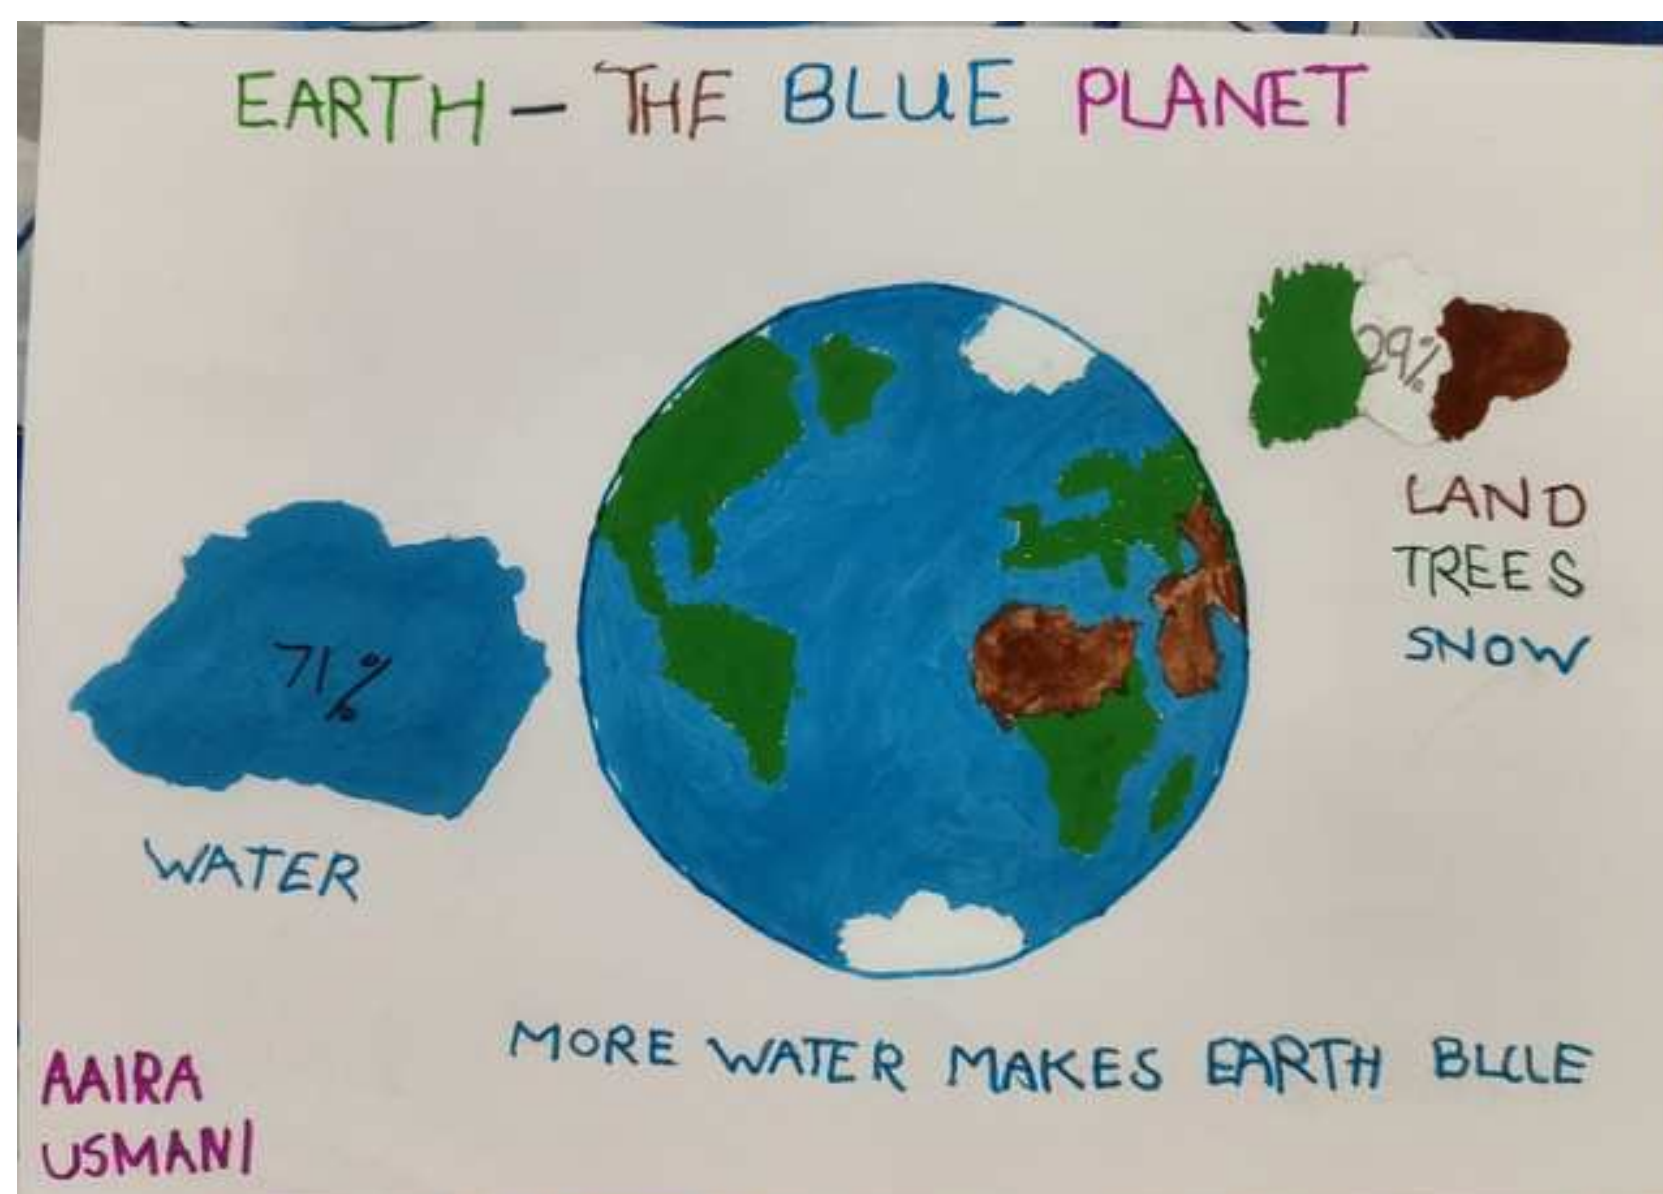 EARTH - THE BLUE PLANET
29%
LAND
TREES
SNOW
71%
WATER
MORE WATER MAKES EARTH BLUE
AAIRA
USMANI